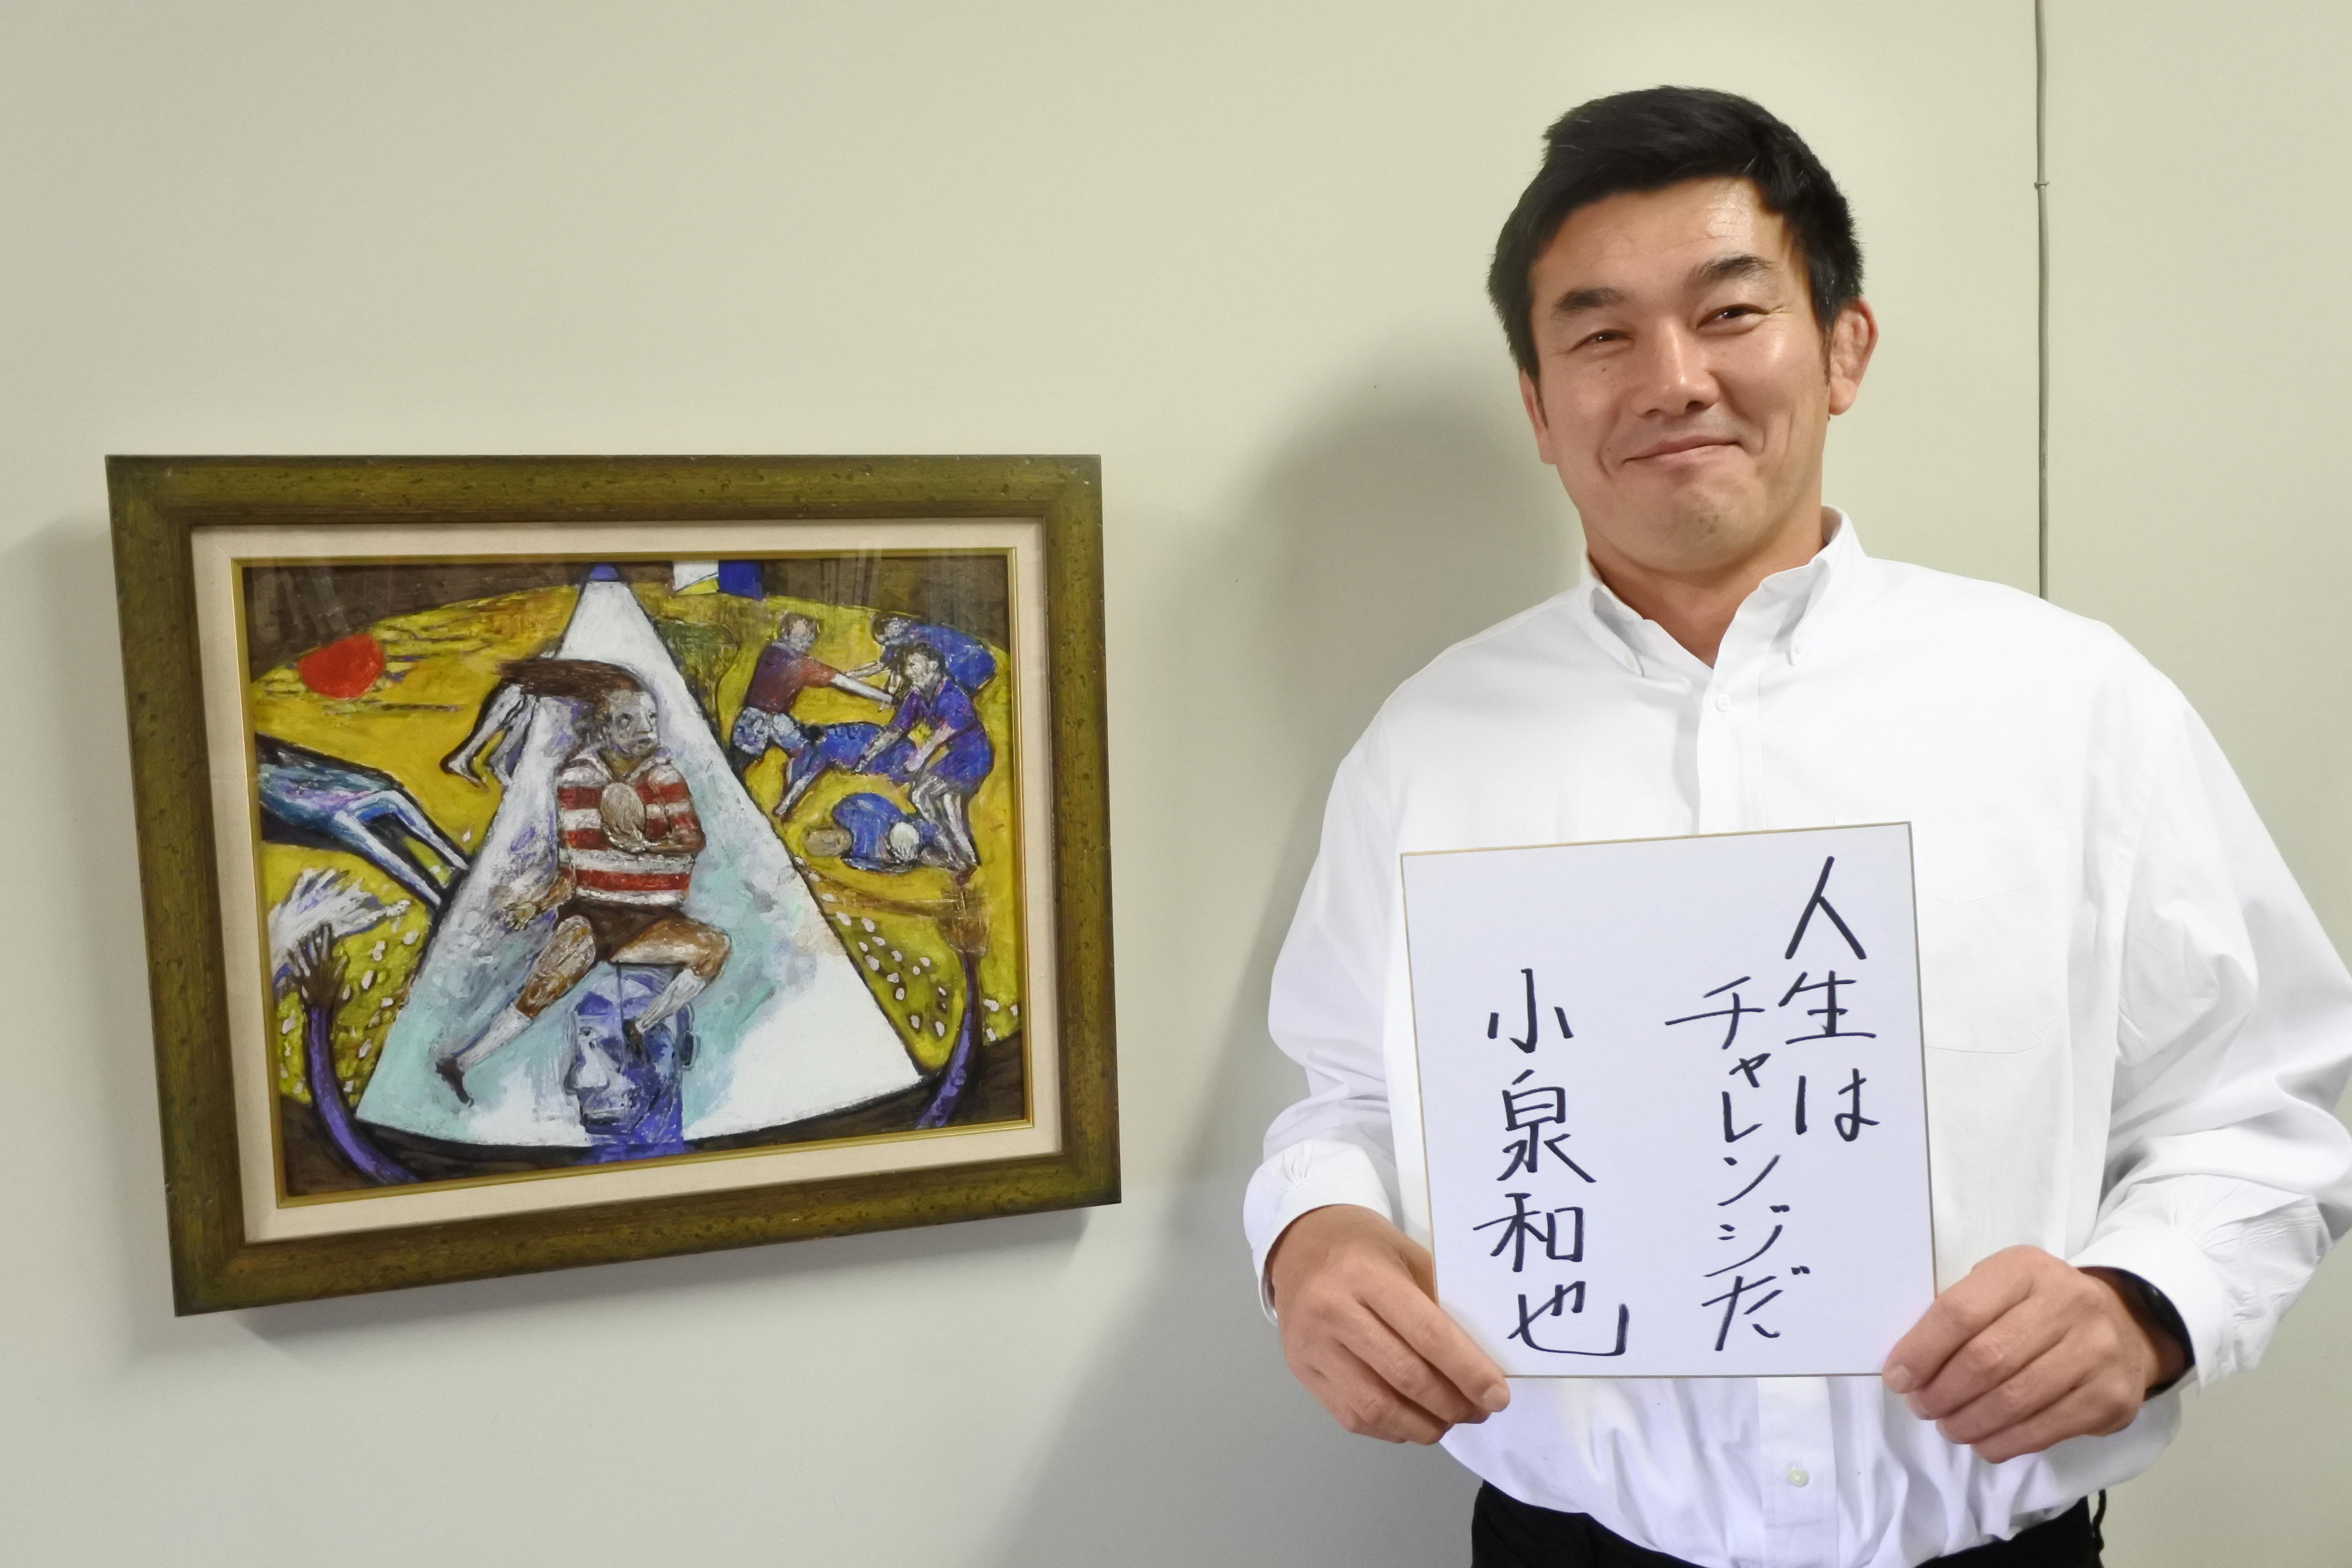 人生は
チャレンジだ
小泉和也